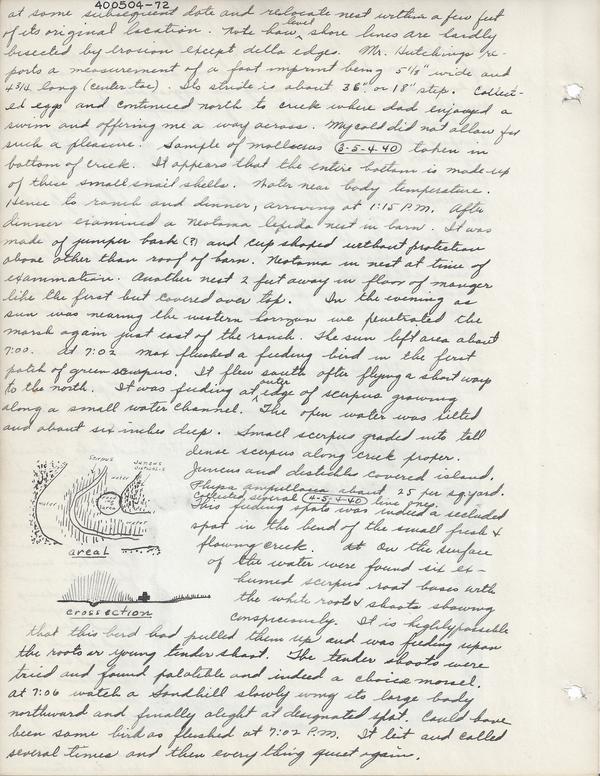 400504-72
at some subsequent date and relocate nest within a few feet
of its original location. Note how level shore lines are hardly
bisected by erosion except delta edges. Mr. Hutchings re-
ports a measurement of a foot imprint being 5 1/8" wide and
4 3/4 long (center toe). Its stride is about 36" or 18" step. Collect-
ed eggs and continued north to creek where dad enjoyed a
swim and offering me a way across. My cold did not allow for
such a pleasure. Sample of molluscus (3-5-4-40) taken in
bottom of creek. It appears that the entire bottom is made up
of these small snail shells. Water near body temperature.
Hence to ranch and dinner, arriving at 1:15 P.M. After
dinner examined a Neotoma lepida nest in barn. It was
made of juniper bark (?) and cup shaped without protection
above other than roof of barn. Neotoma in nest at time of
examination. Another nest 2 feet away in floor of manger
like the first but covered over top. In the evening as
sun was nearing the western horizon we penetrated the
marsh again just east of the ranch. The sun left area about
7:00. At 7:02 Max flushed a feeding bird in the first
patch of green scurpus. It flew south after flying a short way
to the north. It was feeding at outer edge of scerpus growing
along a small water channel. The open water was silted
and about six inches deep. Small scerpus graded into tall
dense scerpus along crik proper.
Juncus and distichlis covered island.
Physa ampullacea about 25 per sq. yard.
Collected several (4-5-4-40) live ones.
This feeding spot was indeed a secluded
spot in the bend of the small fresh &
flowing creek. At On the surface
of the water were found six ex-
humed scerpus root bases with
the white roots & shoots showing
conspicuously. It is highly possible
that this bird had pulled them up and was feeding upon
the roots or young tender shoot. The tender shoots were
tried and found palatible and indeed a choice morsel.
At 7:06 watch a Sandhill slowly wing its large body
northward and finally alight at designated spot. Could have
been same bird as flushed at 7:02 P.M. It lit and called
several times and then everything quiet again.
scerpus
water
Juncus
water
water
areal
crossection